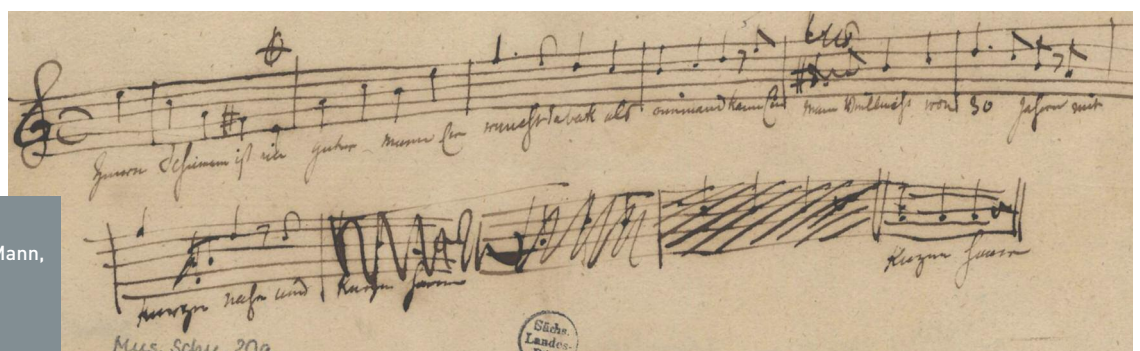 Schumann ist ein guter Mann Er raucht Tabak als kann Ein Mann vielleicht von 30 Jahren mit
Mann,
kurzer Nase und kurzen Haaren kurzen Haaren
Mus. Schu.
Sächs.
Landes-